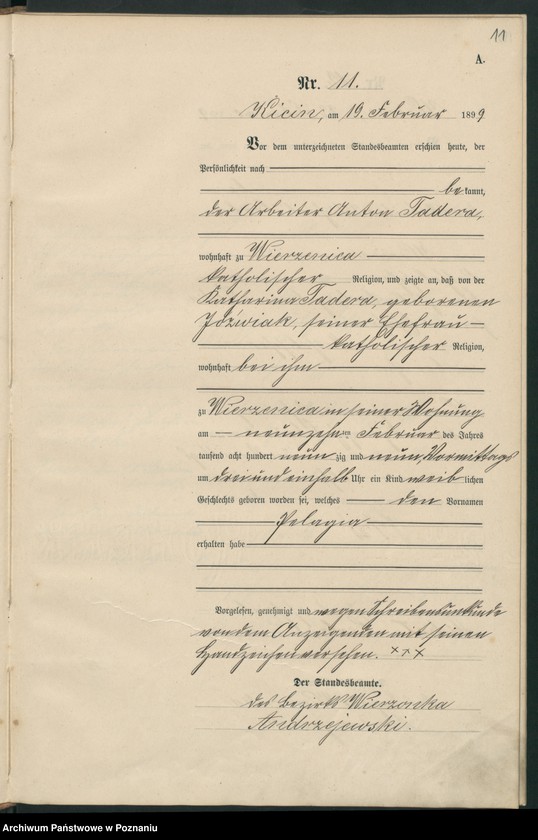 11
A.
Nr. 11.
Kicin, am 19. Februar 1899
Vor dem unterzeichneten Standesbeamten erschien heute, der
Persönlichkeit nach
bekannt,
der Arbeiter Anton Tadera,
wohnhaft zu Wierzenica
katholischer Religion, und zeigte an, daß von der
Katharina Tadera, geborenen
Jóźwiak, seiner Ehefrau
katholischer Religion,
wohnhaft bei ihm
zu Wierzenica in seiner Wohnung
am neunzehn Februar des Jahres
tausend acht hundert neunzig und neun, Vormittags
um drei und einhalb Uhr ein Kind weiblichen
Geschlechts geboren worden sei, welches den Vornamen
Pelagia
erhalten habe
Vorgelesen, genehmigt und wegen Schreibensunkunde
von dem Anzeigenden mit seinen
Handzeichen versehen. ×××
Der Standesbeamte.
des Bezirks Wierzonka
Andrzejewski.
Archiwum Państwowe w Poznaniu